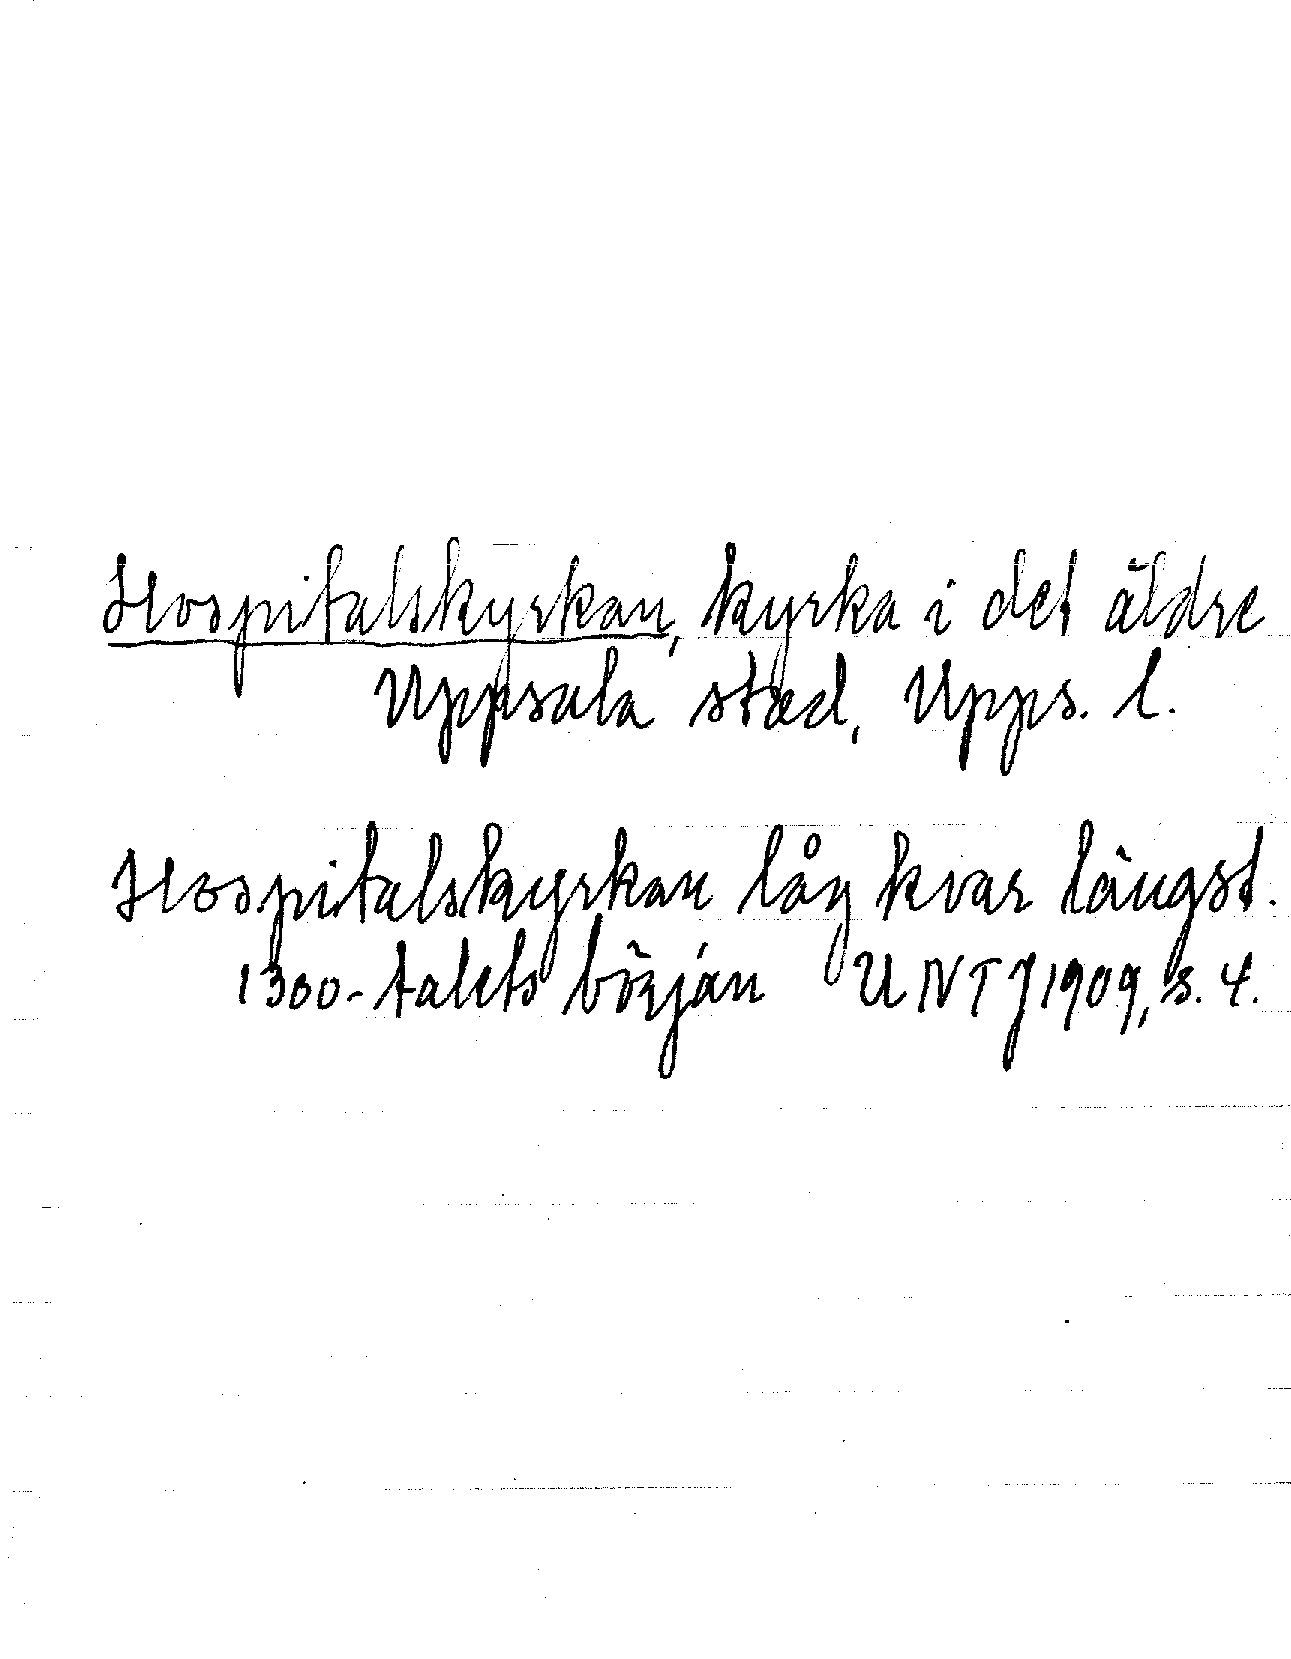 Hospitalskyrkan, kyrka i det äldre
Uppsala stad, Upps. l.
Hospitalskyrkan låg kvar längst.
1300-talets början UNTJ1909, s. 4.